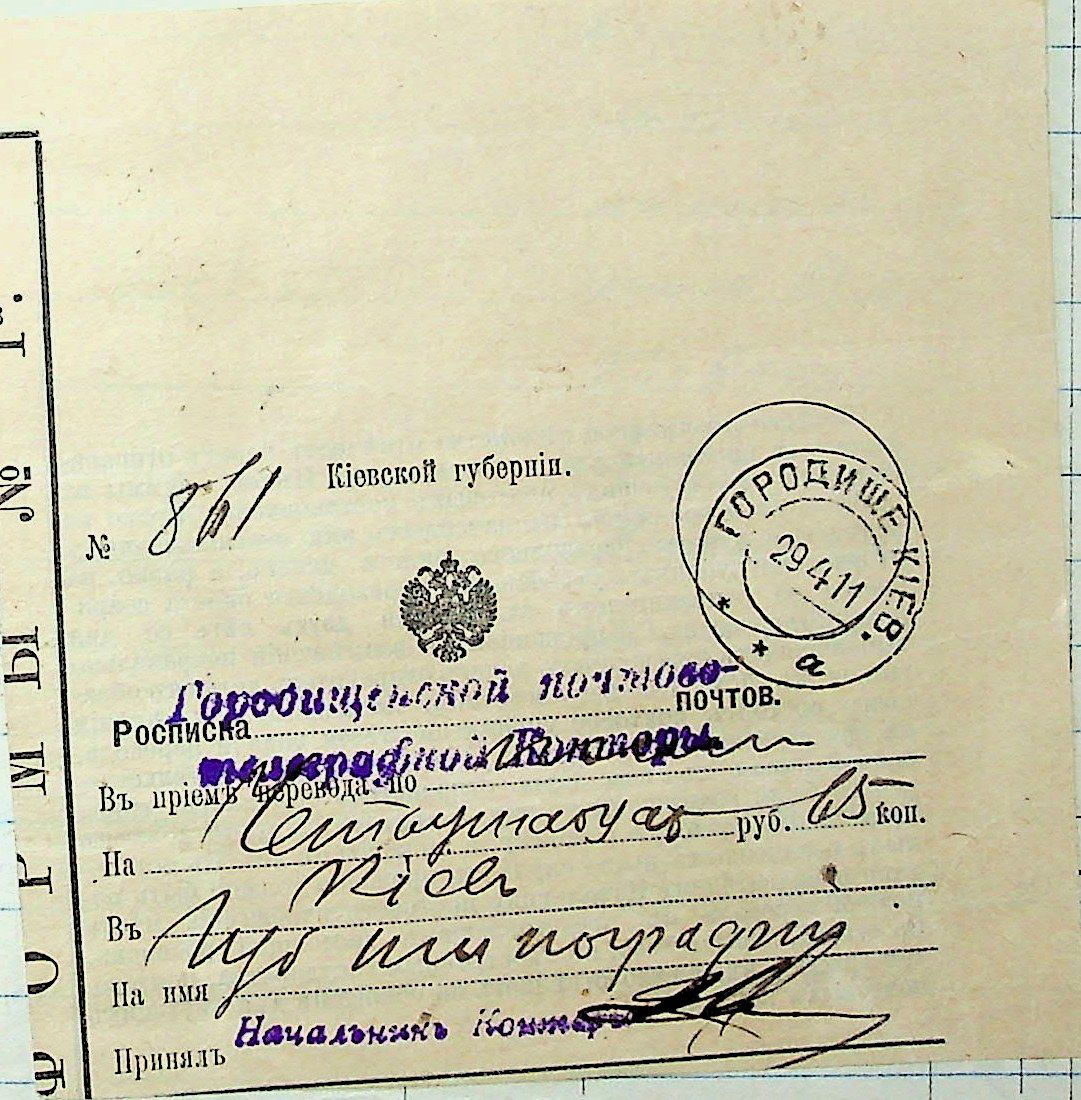 ФОРМЫ № 1в. Г.
№ 861
Кіевской губерніи.
ГОРОДИЩЕ КІЕВ.
29.4.11
* * а
Городищенской почтово-
Росписка почтов.
телеграфной Конторы
Въ пріемѣ перевода по
На руб. 65 коп.
Въ Кіевъ
На имя Губ типографіи
Начальникъ Конторы
Принялъ